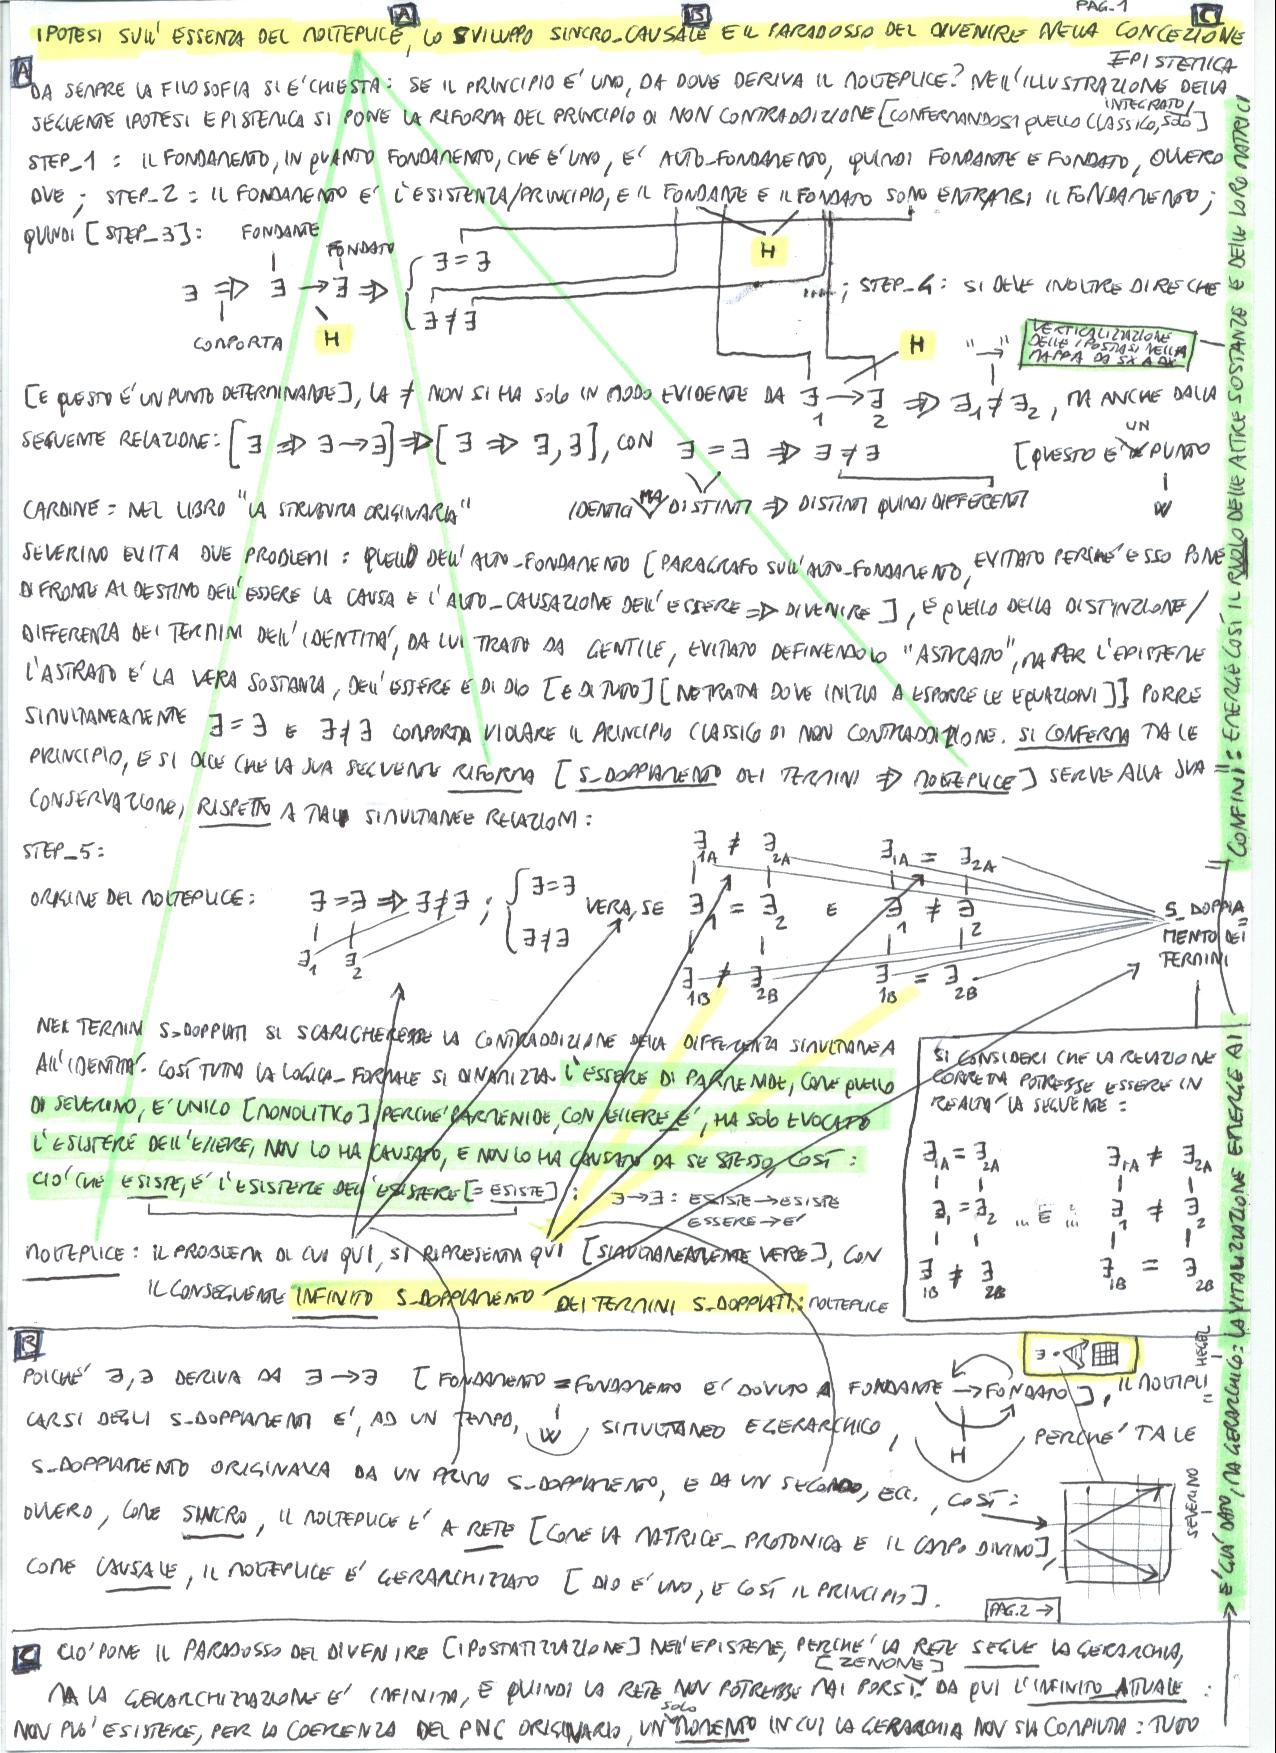 PAG-1
A B C
IPOTESI SULL'ESSENZA DEL MOLTEPLICE, LO SVILUPPO SINCRO-CAUSALE E IL PARADOSSO DEL DIVENIRE NELLA CONCEZIONE
EPISTEMICA
A
DA SEMPRE LA FILOSOFIA SI E' CHIESTA: SE IL PRINCIPIO E' UNO, DA DOVE DERIVA IL MOLTEPLICE? NELL'ILLUSTRAZIONE DELLA
SEGUENTE IPOTESI EPISTEMICA SI PONE LA RIFORMA DEL PRINCIPIO DI NON CONTRADDIZIONE [CONFERMANDOSI QUELLO CLASSICO, INTEGRATO/SOLO]
STEP_1: IL FONDAMENTO, IN QUANTO FONDAMENTO, CHE E' UNO, E' AUTO-FONDAMENTO, QUINDI FONDANTE E FONDATO, OVVERO
DUE; STEP_2: IL FONDAMENTO E' L'ESISTENZA/PRINCIPIO, E IL FONDANTE E IL FONDATO SONO ENTRAMBI IL FONDAMENTO;
QUINDI [STEP_3]: FONDANTE FONDATO
∃ ⇒ ∃ → ∃ ⇒ { ∃ = ∃
∃ ≠ ∃
H
COMPORTA H
; STEP_4: SI DEVE INOLTRE DIRE CHE
H "→" VERTICALIZZAZIONE
DELLE IPOSTASI NELLA
MAPPA DA SX A DX
[E QUESTO E' UN PUNTO DETERMINANTE], LA ≠ NON SI HA SOLO IN MODO EVIDENTE DA ∃1 → ∃2 ⇒ ∃1 ≠ ∃2, MA ANCHE DALLA
SEGUENTE RELAZIONE: [∃ ⇒ ∃ → ∃] ⇒ [∃ ⇒ ∃, ∃], CON ∃ = ∃ ⇒ ∃ ≠ ∃ [QUESTO E' UN PUNTO
W
IDENTICI MA DISTINTI ⇒ DISTINTI QUINDI DIFFERENTI
CARDINE: NEL LIBRO "LA STRUTTURA ORIGINARIA"
SEVERINO EVITA DUE PROBLEMI: QUELLO DELL'AUTO-FONDAMENTO [PARAGRAFO SULL'AUTO-FONDAMENTO, EVITATO PERCHE' ESSO PONE
DI FRONTE AL DESTINO DELL'ESSERE LA CAUSA E L'AUTO-CAUSAZIONE DELL'ESSERE ⇒ DIVENIRE], E QUELLO DELLA DISTINZIONE/
DIFFERENZA DEI TERMINI DELL'IDENTITA', DA LUI TRATTO DA GENTILE, EVITATO DEFINENDOLO "ASTRATTO", MA PER L'EPISTEME
L'ASTRATTO E' LA VERA SOSTANZA, DELL'ESSERE E DI DIO [E DI TUTTO] [NE TRATTA DOVE INIZIA A ESPORRE LE EQUAZIONI]] PORRE
SIMULTANEAMENTE ∃ = ∃ E ∃ ≠ ∃ COMPORTA VIOLARE IL PRINCIPIO CLASSICO DI NON CONTRADDIZIONE. SI CONFERMA TALE
PRINCIPIO, E SI DICE CHE LA SUA SEGUENTE RIFORMA [S_DOPPIAMENTO DEI TERMINI ⇒ MOLTEPLICE] SERVE ALLA SUA
CONSERVAZIONE, RISPETTO A TALI SIMULTANEE RELAZIONI:
STEP_5:
ORIGINE DEL MOLTEPLICE: ∃ = ∃ ⇒ ∃ ≠ ∃ ; { ∃ = ∃
∃ ≠ ∃
VERA, SE
∃1 ∃2
∃1A ≠ ∃2A ∃1A = ∃2A
∃1 = ∃2 E ∃1 ≠ ∃2
∃1B ≠ ∃2B ∃1B = ∃2B
S_DOPPIA
MENTO DEI
TERMINI
NEI TERMINI S_DOPPIATI SI SCARICHEREBBE LA CONTRADDIZIONE DELLA DIFFERENZA SIMULTANEA
ALL'IDENTITA'. COSI' TUTTA LA LOGICA-FORMALE SI DINAMIZZA. L'ESSERE DI PARMENIDE, COME QUELLO
DI SEVERINO, E' UNICO [MONOLITICO] PERCHE' PARMENIDE, CON ESSERE E', HA SOLO EVOCATO
L'ESISTERE DELL'ESSERE, NON LO HA CAUSATO, E NON LO HA CAUSATO DA SE STESSO, COSI':
CIO' CHE ESISTE, E' L'ESISTERE DELL'ESISTERE [= ESISTE]: ∃ → ∃: ESISTE → ESISTE
ESSERE → E'
MOLTEPLICE: IL PROBLEMA DI CUI QUI, SI RIPRESENTA QUI [SIMULTANEAMENTE VERE], CON
IL CONSEGUENTE INFINITO S_DOPPIAMENTO DEI TERMINI S_DOPPIATI: MOLTEPLICE
SI CONSIDERI CHE LA RELAZIONE
CORRETTA POTREBBE ESSERE IN
REALTA' LA SEGUENTE:
∃1A = ∃2A ∃1A ≠ ∃2A
∃1 = ∃2 ... E ... ∃1 ≠ ∃2
∃1B ≠ ∃2B ∃1B = ∃2B
B
POICHE' ∃, ∃ DERIVA DA ∃ → ∃ [FONDAMENTO = FONDAMENTO E' DOVUTO A FONDANTE → FONDATO], IL MOLTIPLI
CARSI DEGLI S_DOPPIAMENTI E', AD UN TEMPO, W SIMULTANEO E GERARCHICO, H PERCHE' TALE
S_DOPPIAMENTO ORIGINAVA DA UN PRIMO S_DOPPIAMENTO, E DA UN SECONDO, ECC., COSI':
OVVERO, COME SINCRO, IL MOLTEPLICE E' A RETE [COME LA MATRICE_PROTONICA E IL CAMPO DIVINO],
COME CAUSALE, IL MOLTEPLICE E' GERARCHIZZATO [DIO E' UNO, E COSI' IL PRINCIPIO].
PAG.2 →
C
CIO' PONE IL PARADOSSO DEL DIVENIRE [IPOSTATIZZAZIONE] NELL'EPISTEME, PERCHE' LA RETE SEGUE LA GERARCHIA,
[ZENONE]
MA LA GERARCHIZZAZIONE E' INFINITA, E QUINDI LA RETE NON POTREBBE MAI PORSI. DA QUI L'INFINITO ATTUALE:
NON PUO' ESISTERE, PER LA COERENZA DEL PNC ORIGINARIO, UN SOLO MOMENTO IN CUI LA GERARCHIA NON SIA COMPIUTA: TUTTO
E' GIA' DATO, MA GERARCHICO: LA VITALIZZAZIONE EMERGE AI
CONFINI: EMERGE COSI' IL RUOLO DELLE ALTRE SOSTANZE E DELLE LORO MATRICI
HEGEL
SEVERINO